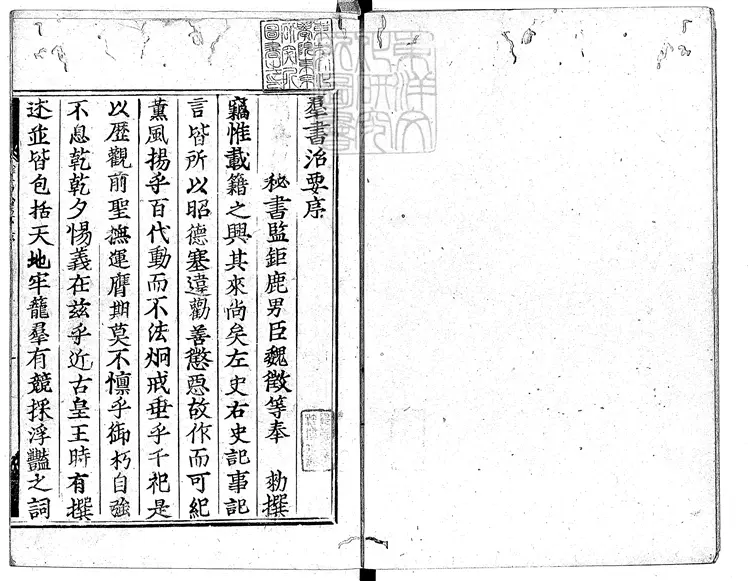 羣書治要序
秘書監鉅鹿男臣魏徵等奉 勑撰
竊惟載籍之興其來尚矣左史右史記事記
言皆所以昭德塞違勸善懲惡故作而可紀
薰風揚乎百代動而不法炯戒垂乎千祀是
以歷觀前聖撫運膺期莫不懍乎御朽自強
不息乾乾夕惕義在茲乎近古皇王時有撰
述並皆包括天地牢籠羣有競採浮豔之詞